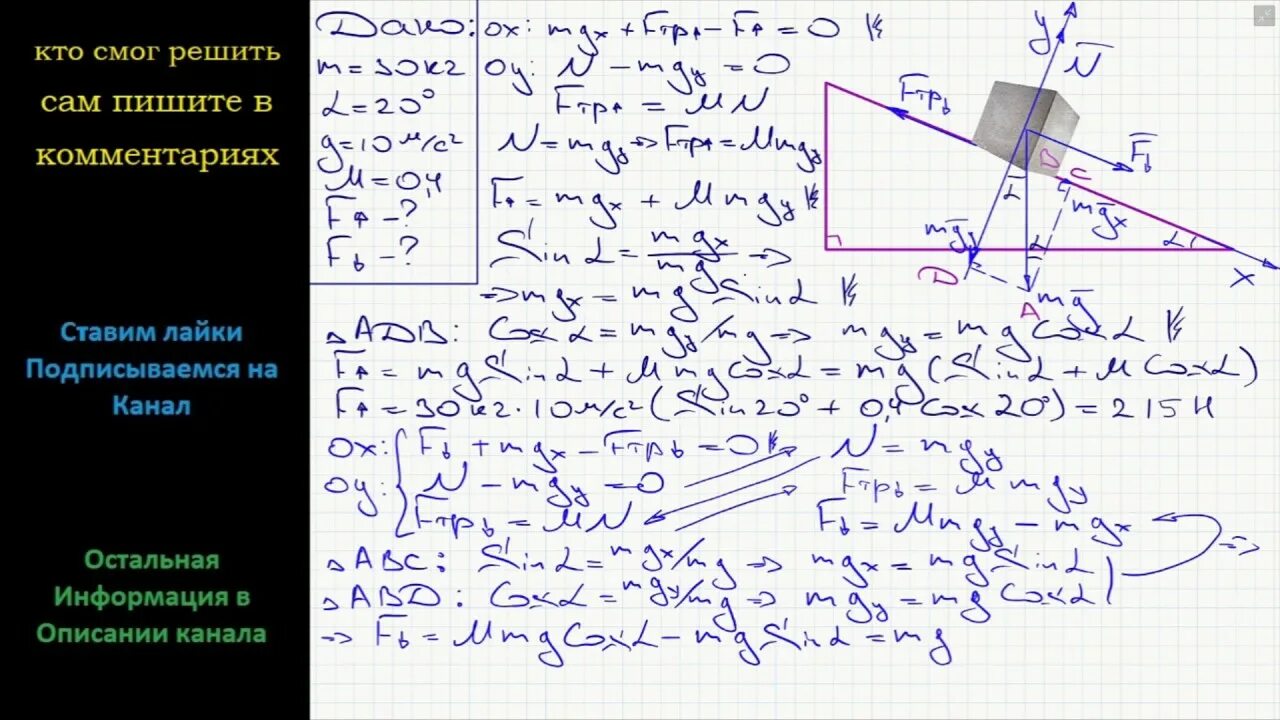 кто смог решить
сам пишите в
комментариях
Ставим лайки
Подписываемся на
Канал
Остальная
Информация в
Описании канала
Дано:
m = 30кг
α = 20°
g = 10 м/с²
M = 0,4
F↑ - ?
F↓ - ?
ox: mgx + Fтр↑ - F↑ = 0
oy: N - mgy = 0
Fтр↑ = MN
N = mgy => Fтр↑ = Mmgy
F↑ = mgx + Mmgy
Sinα = mgx/mg =>
=> mgx = mg Sinα
△ADB: Cosα = mgy/mg => mgy = mg Cosα
F↑ = mg Sinα + Mmg Cosα = mg (Sinα + M Cosα)
F↑ = 30кг · 10м/с² (Sin20° + 0,4 Cos20°) = 215 Н
ox: F↓ + mgx - Fтр↓ = 0
N = mgy
oy: N - mgy = 0
Fтр↓ = Mmgy
Fтр↓ = MN
F↓ = Mmgy - mgx
△ABC: Sinα = mgx/mg => mgx = mg Sinα
=>
△ABD: Cosα = mgy/mg => mgy = mg Cosα
=> F↓ = Mmg Cosα - mg Sinα = mg
y
N
Fтр↓
F↓
B
C
α
mgx
mgy
α
α
D
A
mg
x